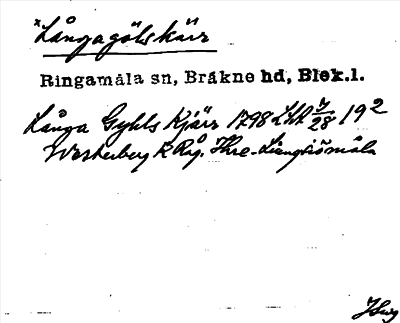 *Långagölskärr
Ringamåla sn, Bräkne hd, Blek.l.
Långa Gyhls Kjärr 1798 LSA 7/28 19²
Westerberg R Rå. Ihre-Liengiömåla